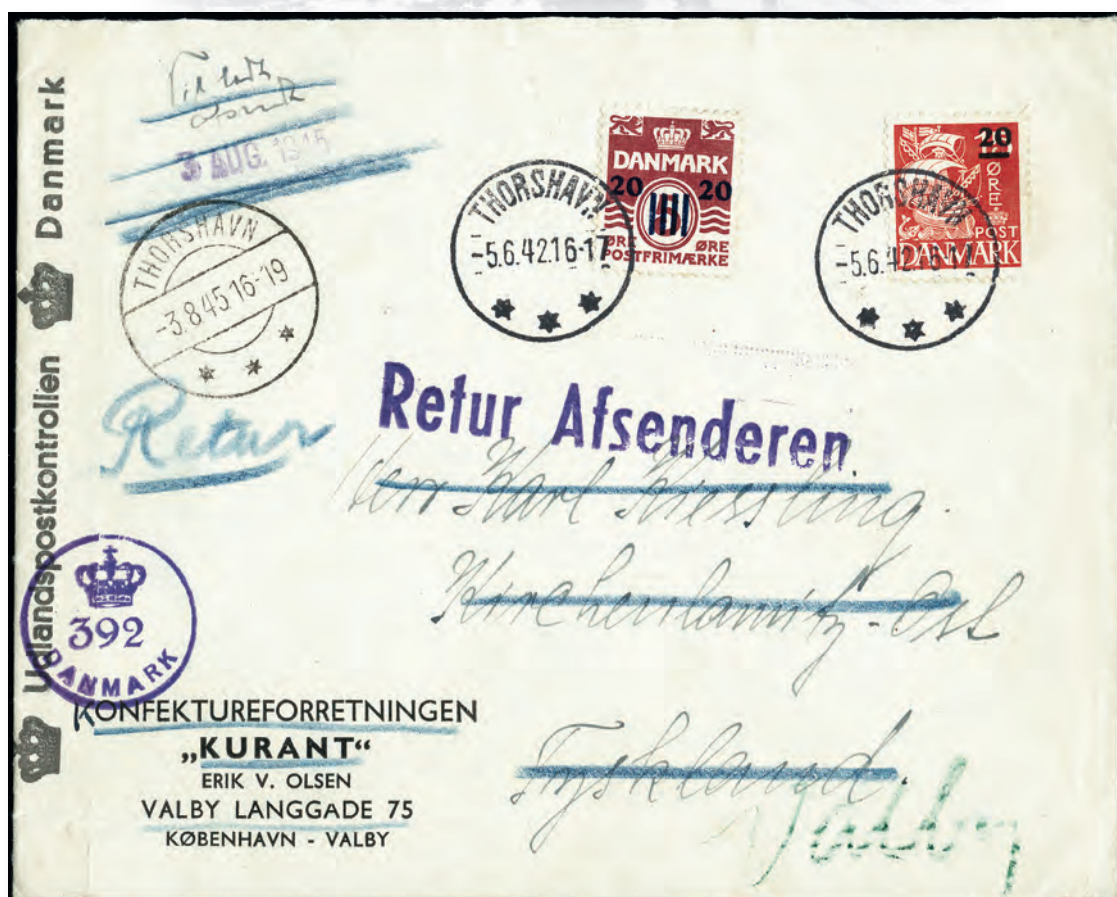 Udlandspostkontrollen Danmark
3 AUG. 1945
THORSHAVN
-3.8.45.16-19
DANMARK
20 20
ØRE ØRE
POSTFRIMÆRKE
THORSHAVN
-5.6.42.16-17
20
ØRE
POST
DANMARK
THORSHAVN
-5.6.42.16-17
Retur
Retur Afsenderen.
Herr Karl Kiessling.
Kirchenlamitz-Ost
Tyskland.
Valby
392
DANMARK
KONFEKTUREFORRETNINGEN
„KURANT“
ERIK V. OLSEN
VALBY LANGGADE 75
KØBENHAVN - VALBY